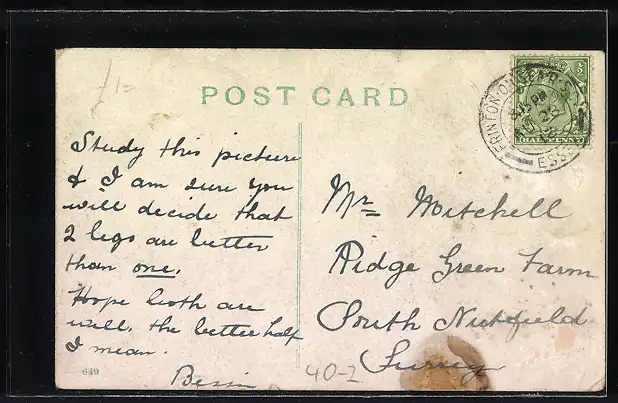 1=
POST CARD
Study this picture
& I am sure you
will decide that
2 legs are better
than one.
Hope both are
well. The better half
I mean.
649
Mr Mitchell
Ridge Green Farm
South Nutfield
Surrey
40-2
FRINTON-ON-SEA
PM
28
ESSEX
HALF PENNY